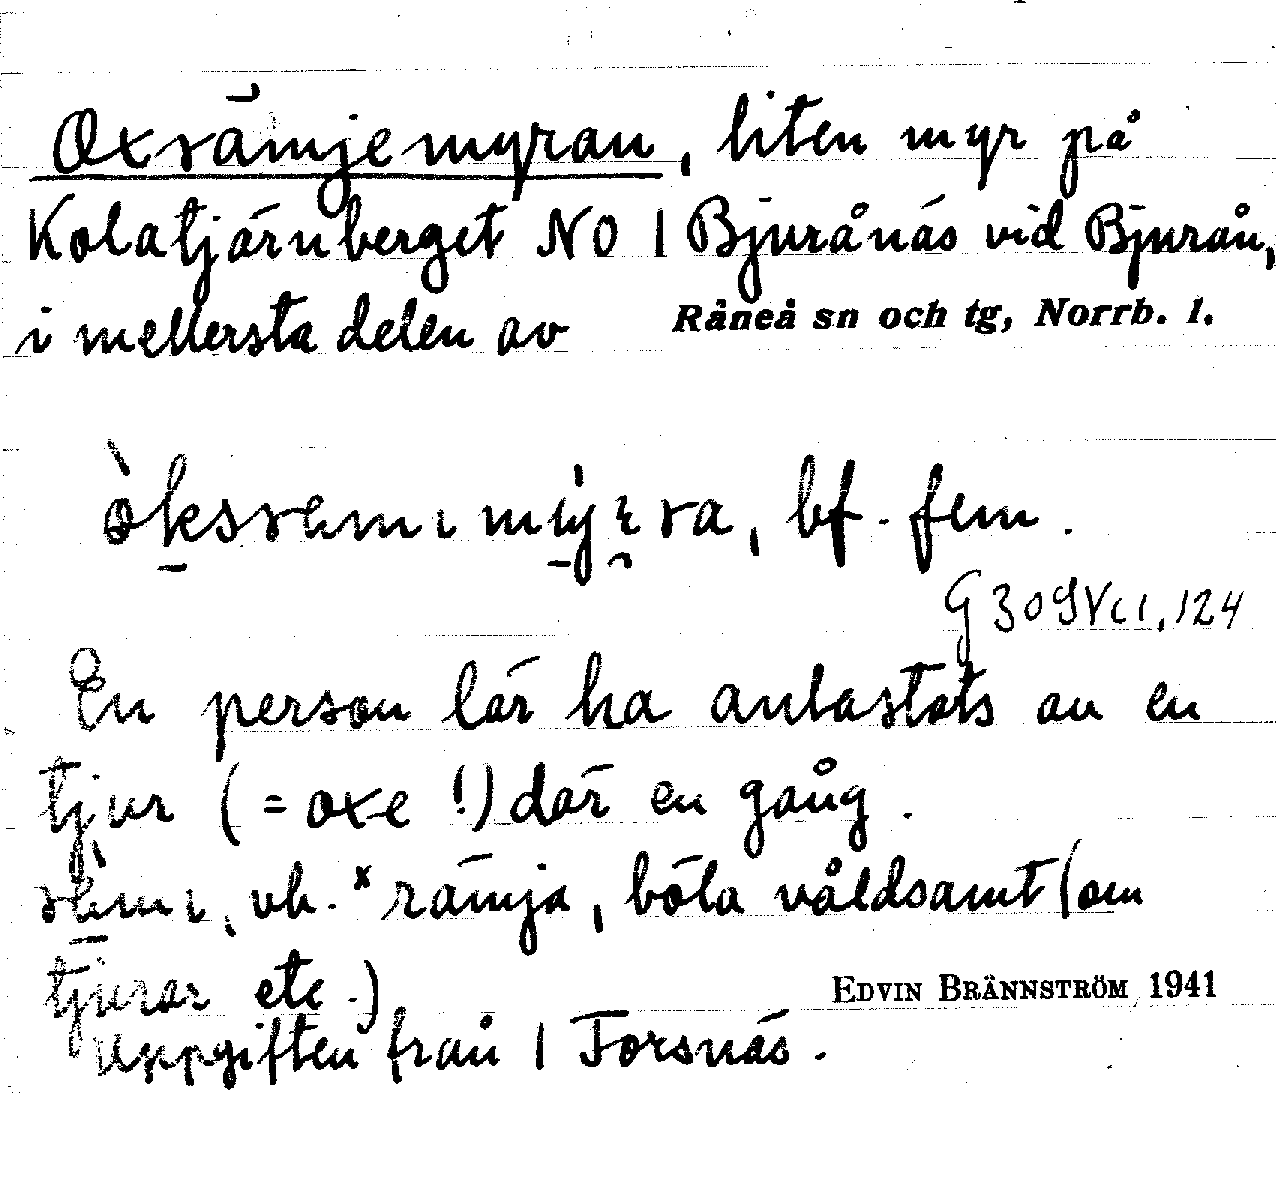 Oxrämjemyran, liten myr på
Kolatjärnberget NO 1 Bjurånäs vid Bjurån,
i mellersta delen av Råneå sn och tg, Norrb. l.
bf. fem.
G 309 VII, 124
En person lär ha antastats av en
tjur (= oxe !) där en gång.
vb. *rämja, böla våldsamt (om
tjurar etc.)
EDVIN BRÄNNSTRÖM 1941
Uppgiften från 1 Forsnäs.